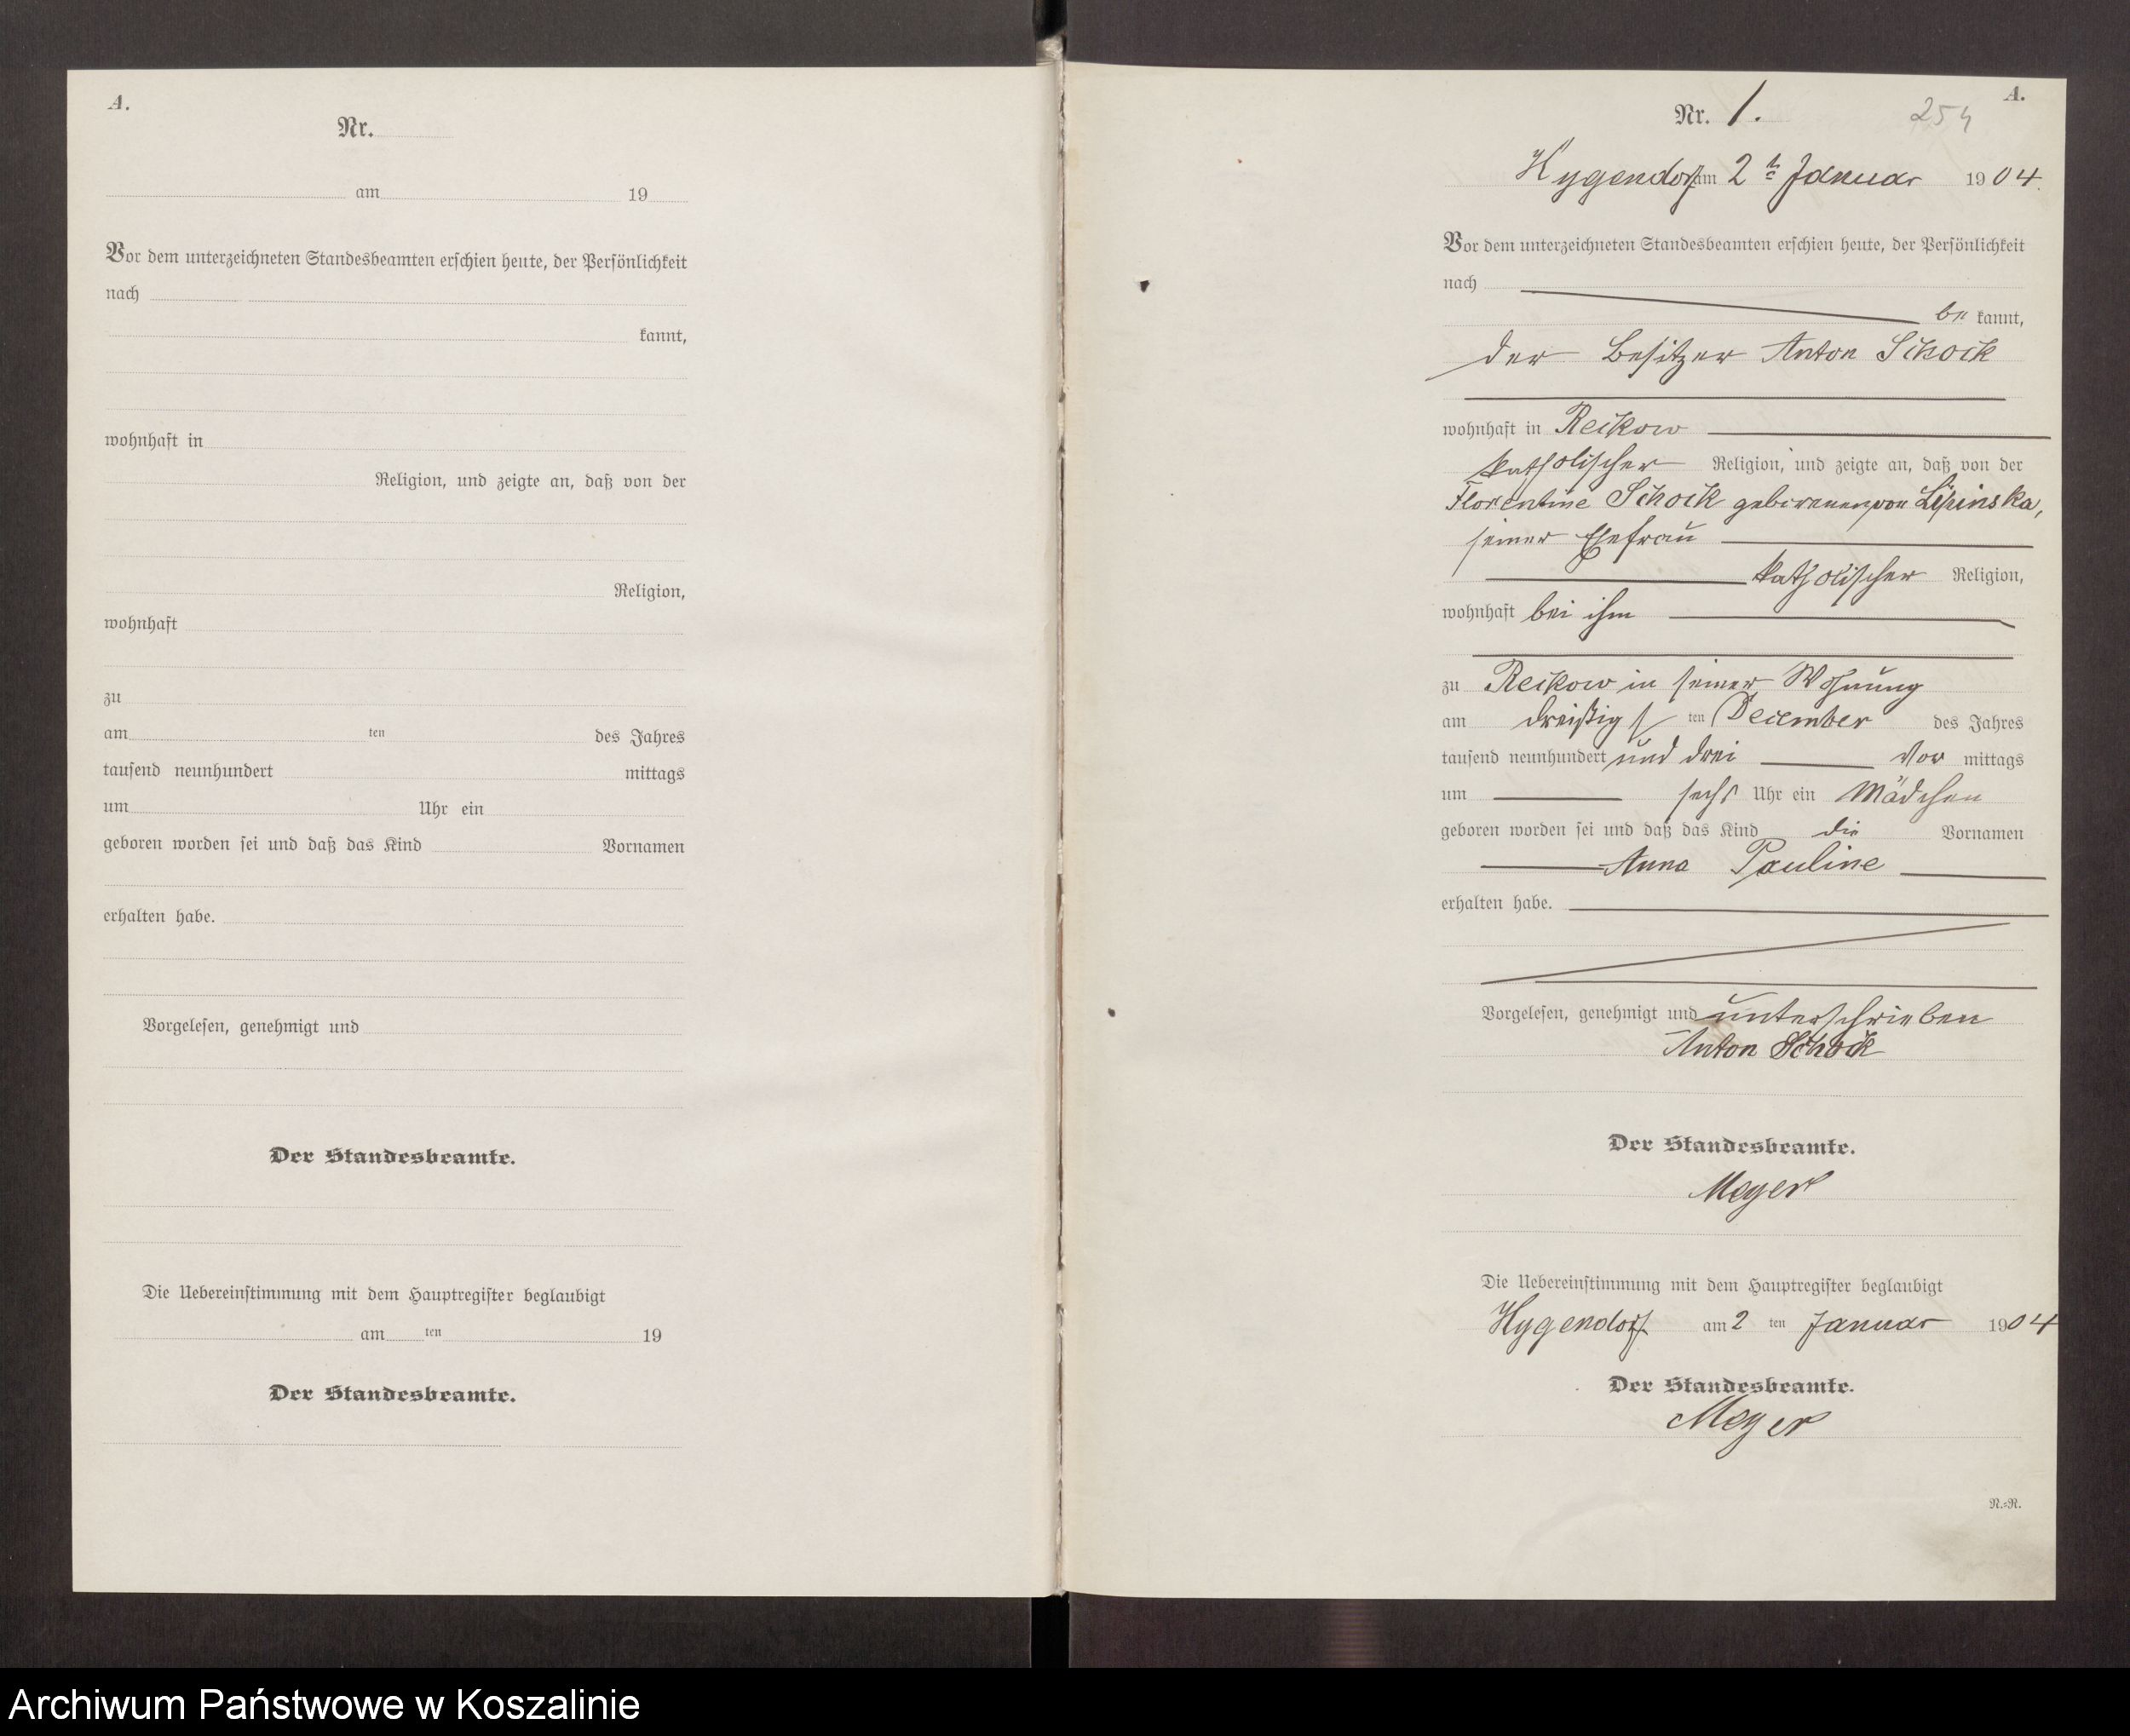 A.
Nr.
am 19
Vor dem unterzeichneten Standesbeamten erschien heute, der Persönlichkeit
nach
kannt,
wohnhaft in
Religion, und zeigte an, daß von der
Religion,
wohnhaft
zu
am ten des Jahres
tausend neunhundert mittags
um Uhr ein
geboren worden sei und daß das Kind Vornamen
erhalten habe.
Vorgelesen, genehmigt und
Der Standesbeamte.
Die Uebereinstimmung mit dem Hauptregister beglaubigt
am ten 19
Der Standesbeamte.
A.
Nr. 1. 254
Hygendorf am 2t Januar 1904.
Vor dem unterzeichneten Standesbeamten erschien heute, der Persönlichkeit
nach
be kannt,
der Besitzer Anton Schock
wohnhaft in Reikow
katholischer Religion, und zeigte an, daß von der
Florentine Schock geborenen von Lipinska,
seiner Ehefrau
katholischer Religion,
wohnhaft bei ihm
zu Reikow in seiner Wohnung
am dreißigs ten December des Jahres
tausend neunhundert und drei Vor mittags
um sechs Uhr ein Mädchen
geboren worden sei und daß das Kind die Vornamen
Anna Pauline
erhalten habe.
Vorgelesen, genehmigt und unterschrieben
Anton Schock
Der Standesbeamte.
Meyer
Die Uebereinstimmung mit dem Hauptregister beglaubigt
Hygendorf am 2 ten Januar 1904
Der Standesbeamte.
Meyer
N.=R.
Archiwum Państwowe w Koszalinie